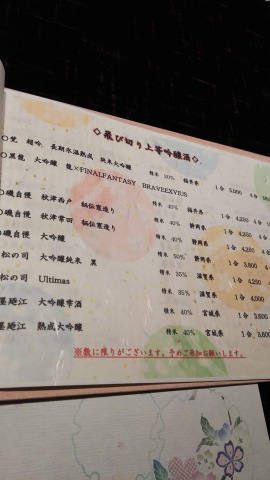 ◇飛び切り上等吟醸酒◇
○梵 超吟 長期氷温熟成 純米大吟醸 精米 20% 福井県 1合 5,000 4合
○黒龍 大吟醸 龍×FINALFANTASY BRAVEEXVIUS 精米 40% 福井県 1合 4,250 4合
○磯自慢 秋津西戸 秘伝寒造り 精米 40% 静岡県 1合 4,250 4合
○磯自慢 秋津常田 秘伝寒造り 精米 40% 静岡県 1合 4,250 4合
○磯自慢 大吟醸 精米 静岡県 1合 3,800
松の司 大吟醸純米 黒 精米 50% 滋賀県 1合 4,250
松の司 Ultimus 精米 35% 滋賀県 1合 4,000
墨廼江 大吟醸雫酒 精米 40% 宮城県 1合 3,600
墨廼江 熟成大吟醸 精米 40% 宮城県 1合 3,600
※数に限りがございます。予めご承知お願いします。